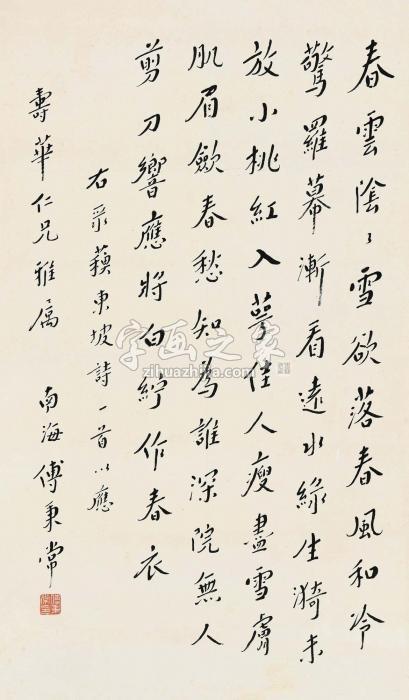 春雲陰〻雪欲落春風和冷
驚羅幕漸看遠水綠生漪未
放小桃紅入萼佳人瘦盡雪膚
肌眉歛春愁知為誰深院無人
剪刀響應將白紵作春衣
右录蘓東坡詩一首以應
壽華仁兄雅属 南海傅秉常
字画之家
zihuazhijia.com